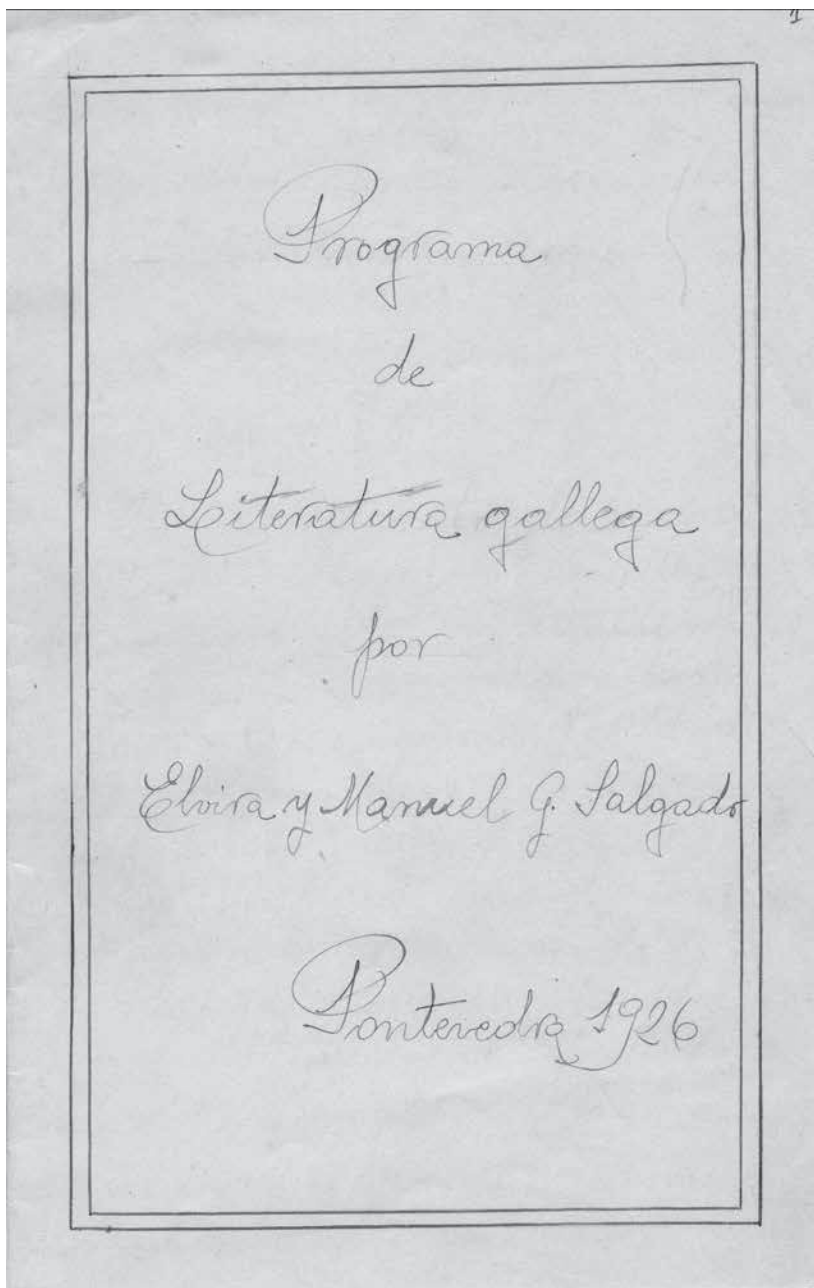 1
Programa
de
Literatura gallega
por
Elvira y Manuel G. Salgado
Pontevedra 1926